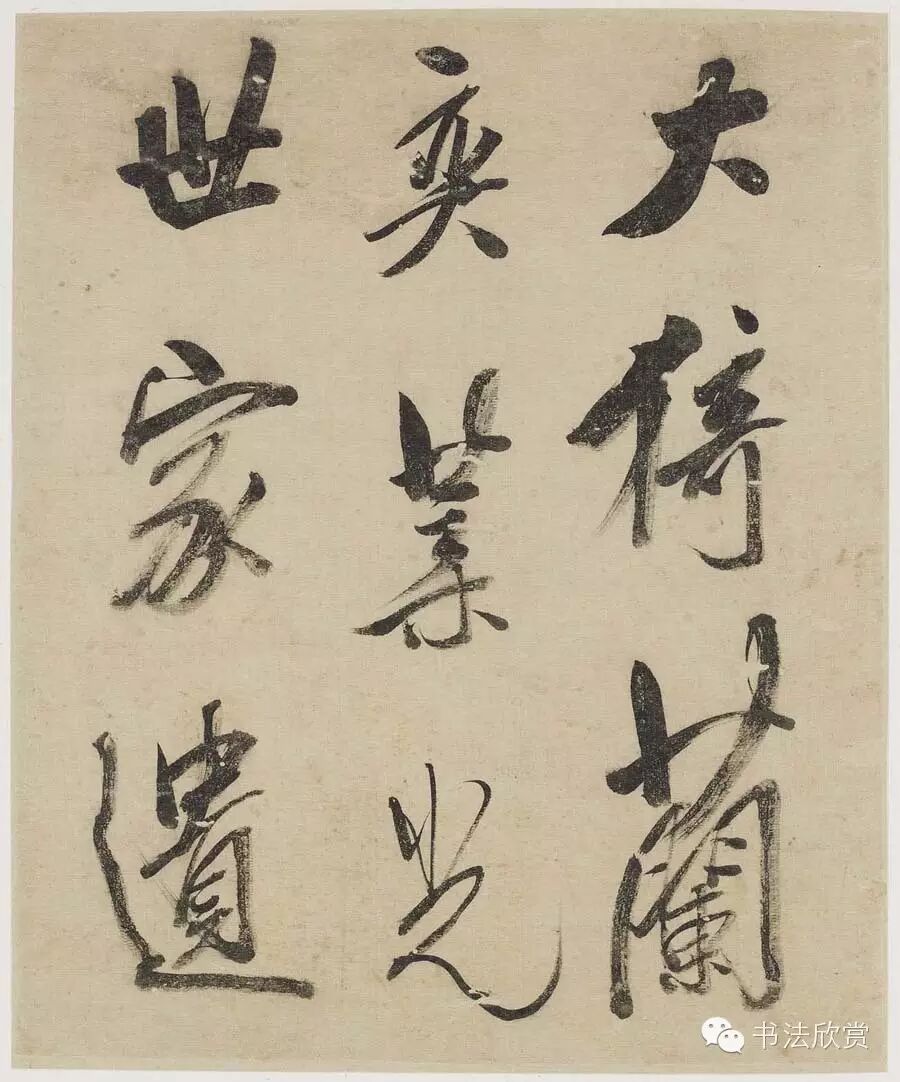 大猗蘭
奕葉光
世家遺
书法欣赏